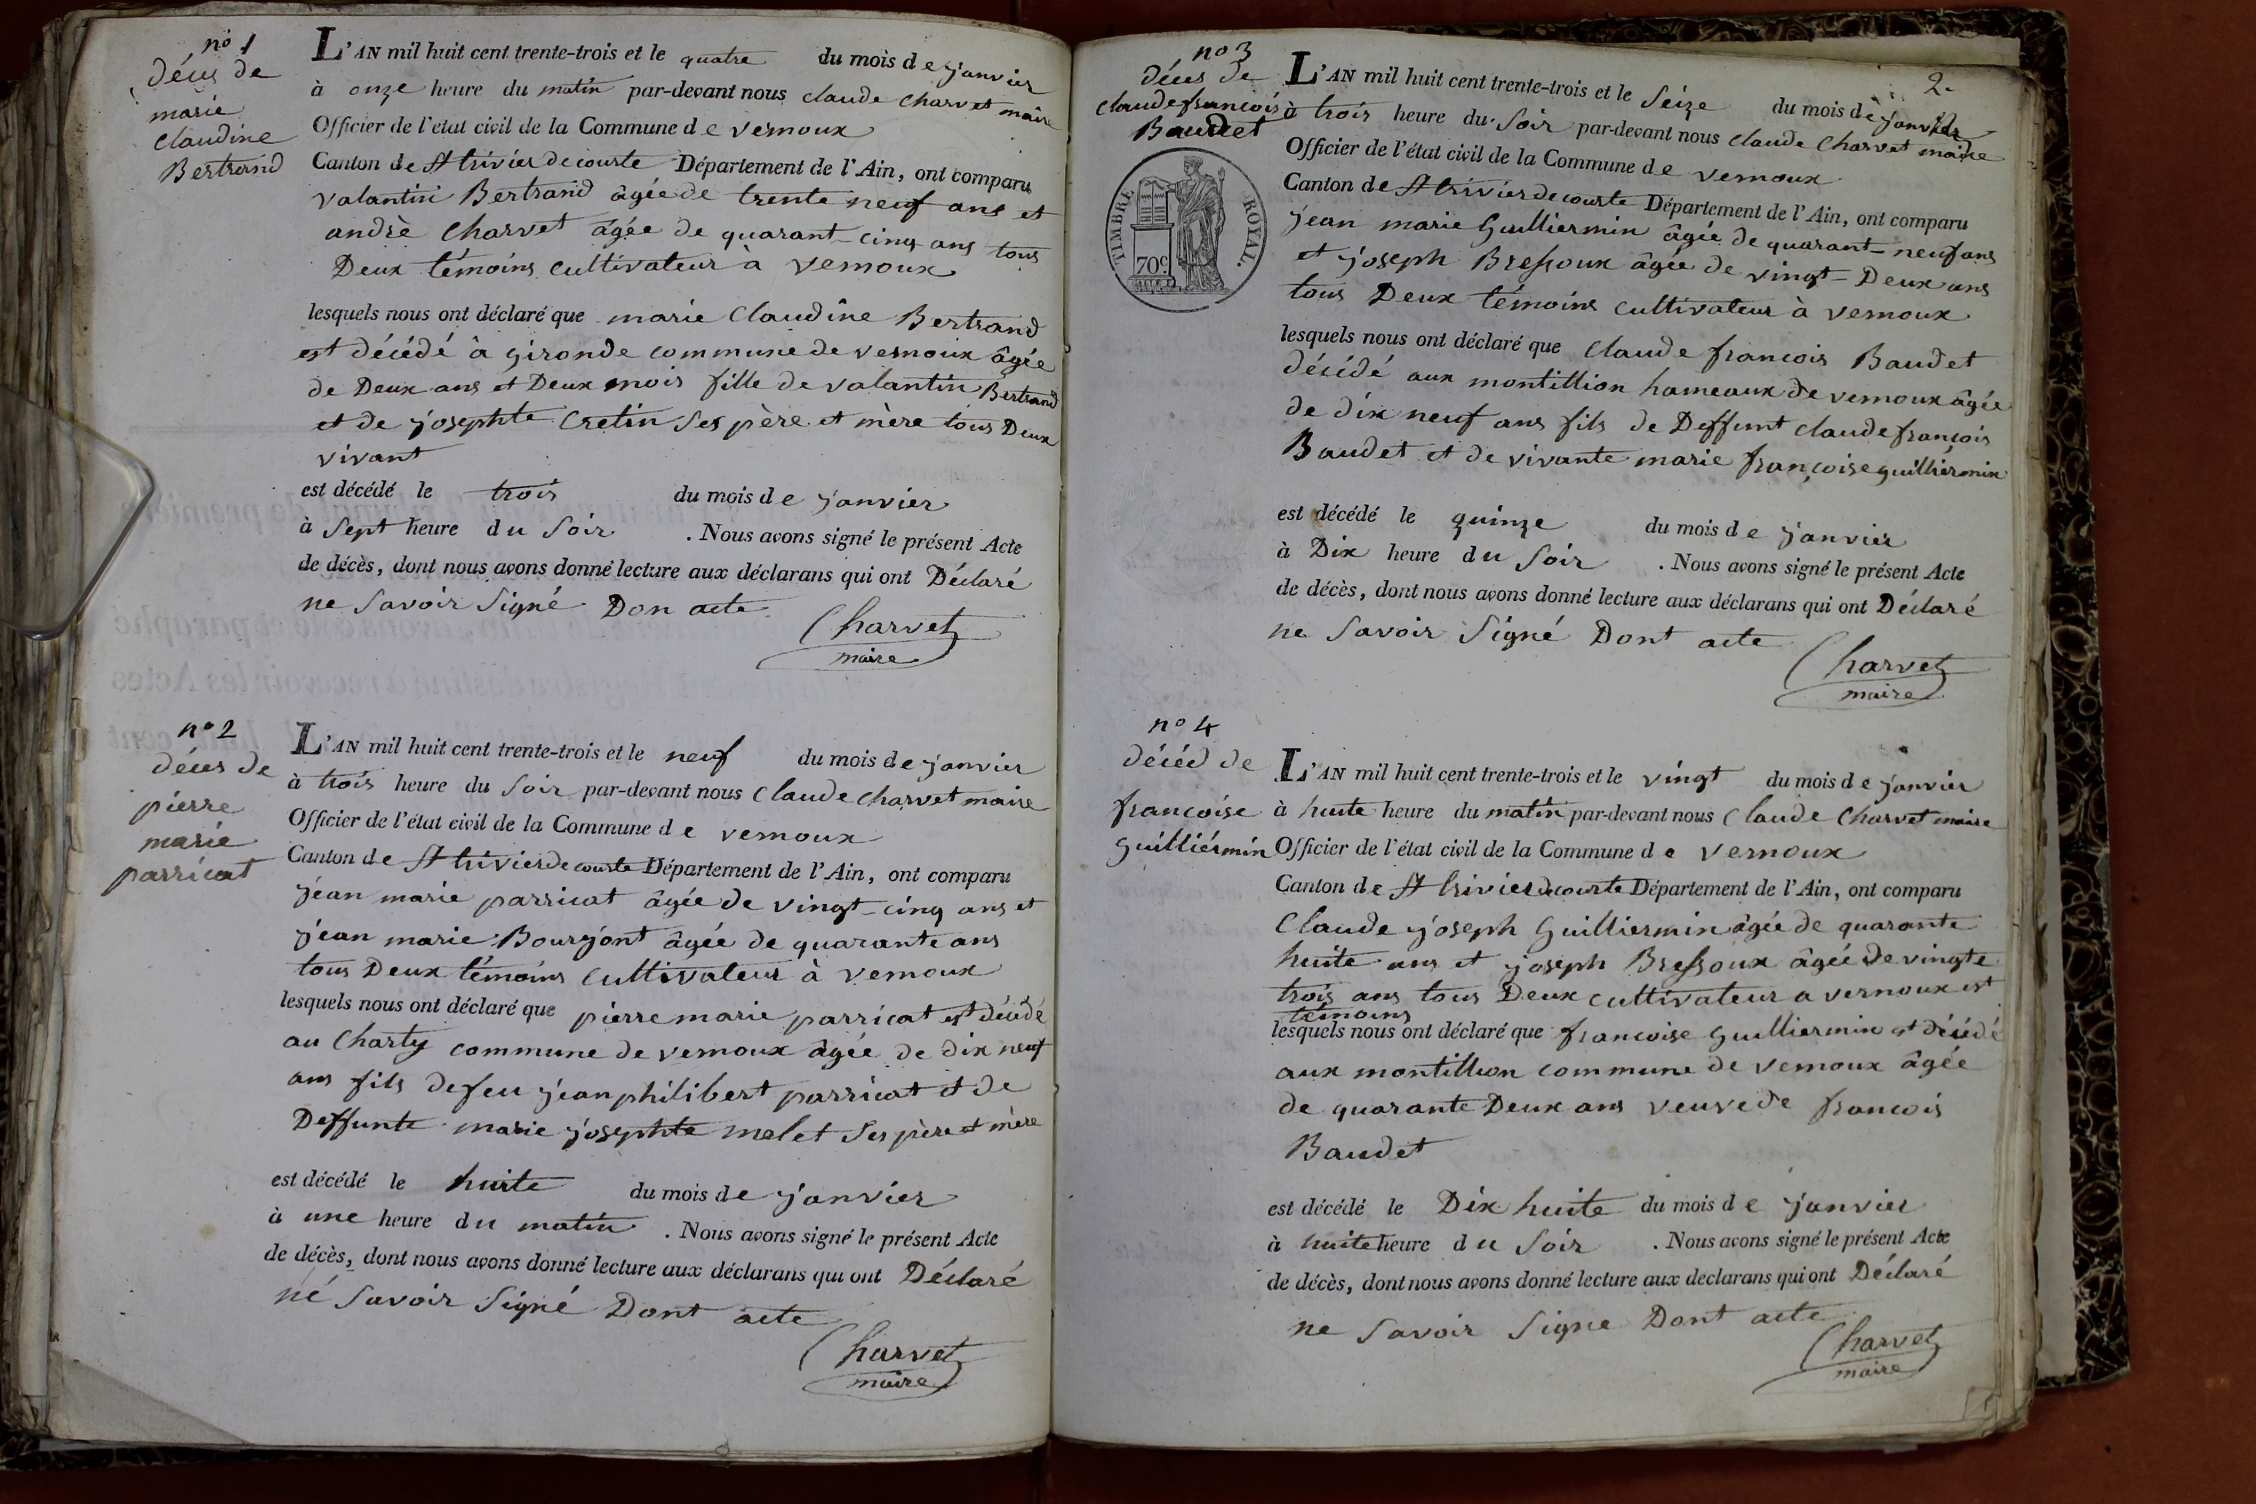 no 1
décès de
marie
claudine
Bertrand
L'AN mil huit cent trente-trois et le quatre du mois de janvier
à onze heure du matin par-devant nous claude charvet maire
Officier de l'etat civil de la Commune de vernoux
Canton de St trivier de courte Département de l'Ain, ont comparu
valantin Bertrand âgée de trente neuf ans et
andrè charvet âgée de quarant-cinq ans tous
Deux témoins cultivateur à vernoux
lesquels nous ont déclaré que marie claudine Bertrand
est décédé à gironde commune de vernoux âgée
de Deux ans et Deux mois fille de valantin Bertrand
et de josephte cretin ses père et mère tous Deux
vivant
est décédé le trois du mois de janvier
à sept heure du soir . Nous avons signé le présent Acte
de décès, dont nous avons donné lecture aux déclarans qui ont Déclaré
ne savoir signé Don acte
Charvet
maire
no 2
décès de
pierre
marie
parricat
L'AN mil huit cent trente-trois et le neuf du mois de janvier
à trois heure du soir par-devant nous claude charvet maire
Officier de l'état civil de la Commune de vernoux
Canton de St trivier de courte Département de l'Ain, ont comparu
jean marie parricat âgée de vingt-cinq ans et
jean marie Bourjont âgée de quarante ans
tous Deux témoins cultivateur à vernoux
lesquels nous ont déclaré que pierre marie parricat est décédé
au charty commune de vernoux âgée de dix neuf
ans fils de feu jean philibert parricat et de
Deffunte marie josephte melet ses père et mère
est décédé le huite du mois de janvier
à une heure du matin . Nous avons signé le présent Acte
de décès, dont nous avons donné lecture aux déclarans qui ont Déclaré
né savoir signé Dont acte
Charvet
maire
2.
no 3
décès de
claude francois
Baudet
TIMBRE ROYAL.
70c
L'AN mil huit cent trente-trois et le seize du mois de janvier
à trois heure du soir par-devant nous claude charvet maire
Officier de l'état civil de la Commune de vernoux
Canton de St trivier de courte Département de l'Ain, ont comparu
jean marie guilliermin âgée de quarant-neuf ans
et joseph Bressoux âgée de vingt-Deux ans
tous Deux témoins cultivateur à vernoux
lesquels nous ont déclaré que claude francois Baudet
décédé aux montillion hameaux de vernoux âgée
de dix neuf ans fils de Deffunt claude francois
Baudet et de vivante marie françoise guilliérmin
est décédé le quinze du mois de janvier
à Dix heure du soir . Nous avons signé le présent Acte
de décès, dont nous avons donné lecture aux déclarans qui ont Déclaré
ne savoir signé Dont acte
Charvet
maire
no 4
décéd de
francoise
guilliérmin
L'AN mil huit cent trente-trois et le vingt du mois de janvier
à huite heure du matin par-devant nous claude charvet maire
Officier de l'état civil de la Commune de vernoux
Canton de St trivier de courte Département de l'Ain, ont comparu
claude joseph guilliermin âgée de quarante
huite ans et joseph Bressoux âgée de vingte
trois ans tous Deux cultivateur a vernoux est
témoins
lesquels nous ont déclaré que francoise guilliermin est décédé
aux montillion commune de vernoux âgée
de quarante Deux ans veuve de francois
Baudet
est décédé le Dix huite du mois de janvier
à huite heure du soir . Nous avons signé le présent Acte
de décès, dont nous avons donné lecture aux declarans qui ont Déclaré
ne savoir signe Dont acte
Charvet
maire